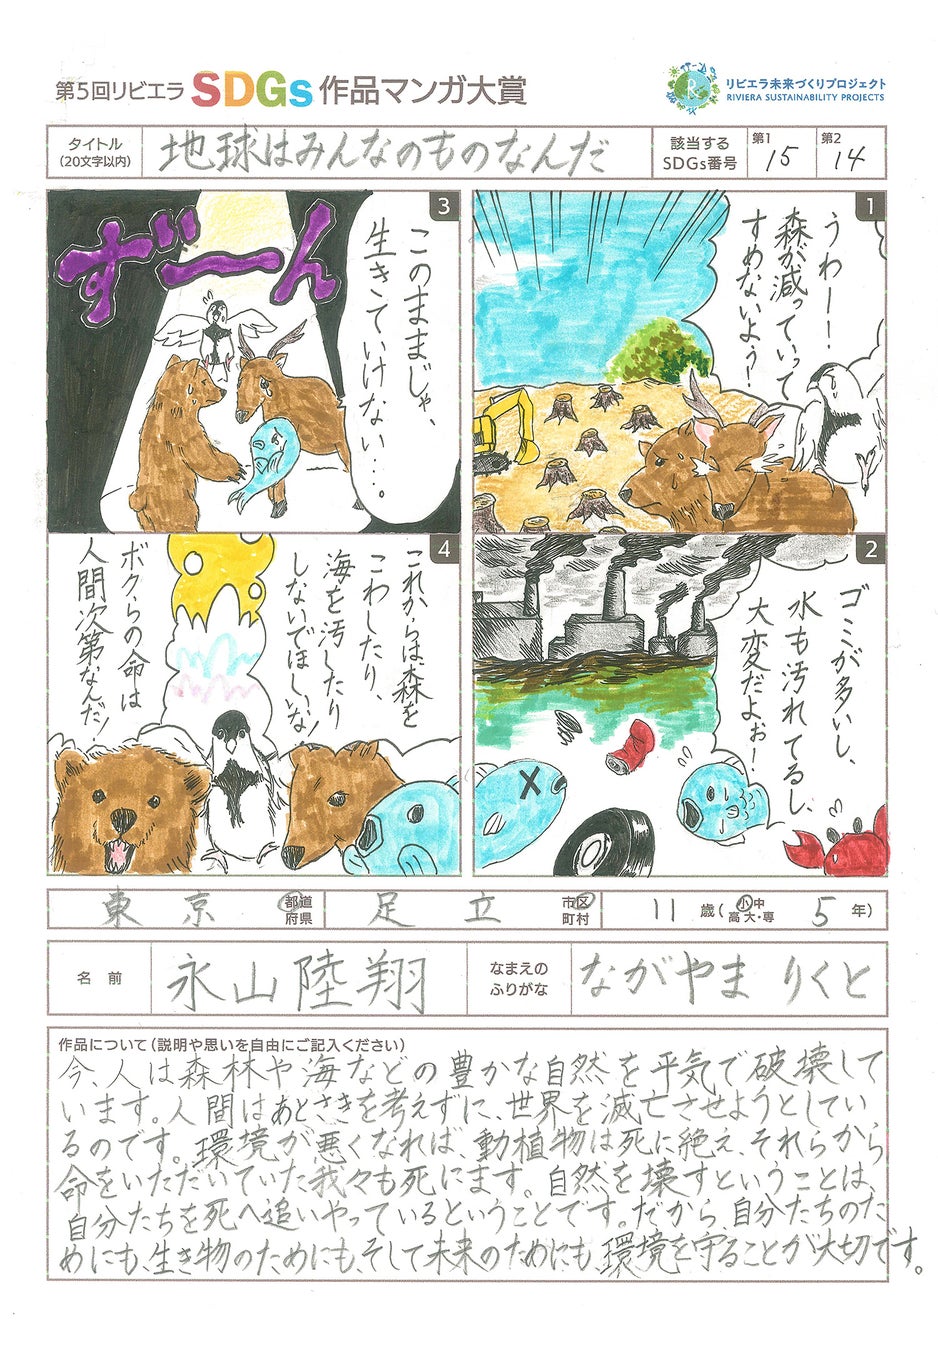 第5回リビエラ SDGs 作品マンガ大賞
リビエラ未来づくりプロジェクト
RIVIERA SUSTAINABILITY PROJECTS
タイトル
(20文字以内)
地球はみんなのものなんだ
該当する
SDGs番号
第1
15
第2
14
1
うわー!
森が減っていって
すめないよぅ!
2
ゴミが多いし、
水も汚れてるし、
大変だよぉ!
3
このままじゃ、
生きていけない…。
ずーん
4
これからは森を
こわしたり、
海を汚したり
しないでほしいな!
ボクらの命は
人間次第なんだ!
東京
都道
府県
足立
市区
町村
11 歳(小中
高大・専
5 年)
名前
永山陸翔
なまえの
ふりがな
ながやま りくと
作品について(説明や思いを自由にご記入ください)
今、人は森林や海などの豊かな自然を平気で破壊して
います。人間はあとさきを考えずに、世界を滅亡させようとしてい
るのです。環境が悪くなれば、動植物は死に絶え、それらから
命をいただいていた我々も死にます。自然を壊すということは、
自分たちを死へ追いやっているということです。だから、自分たちのた
めにも、生き物のためにも、そして未来のためにも、環境を守ることが大切です。